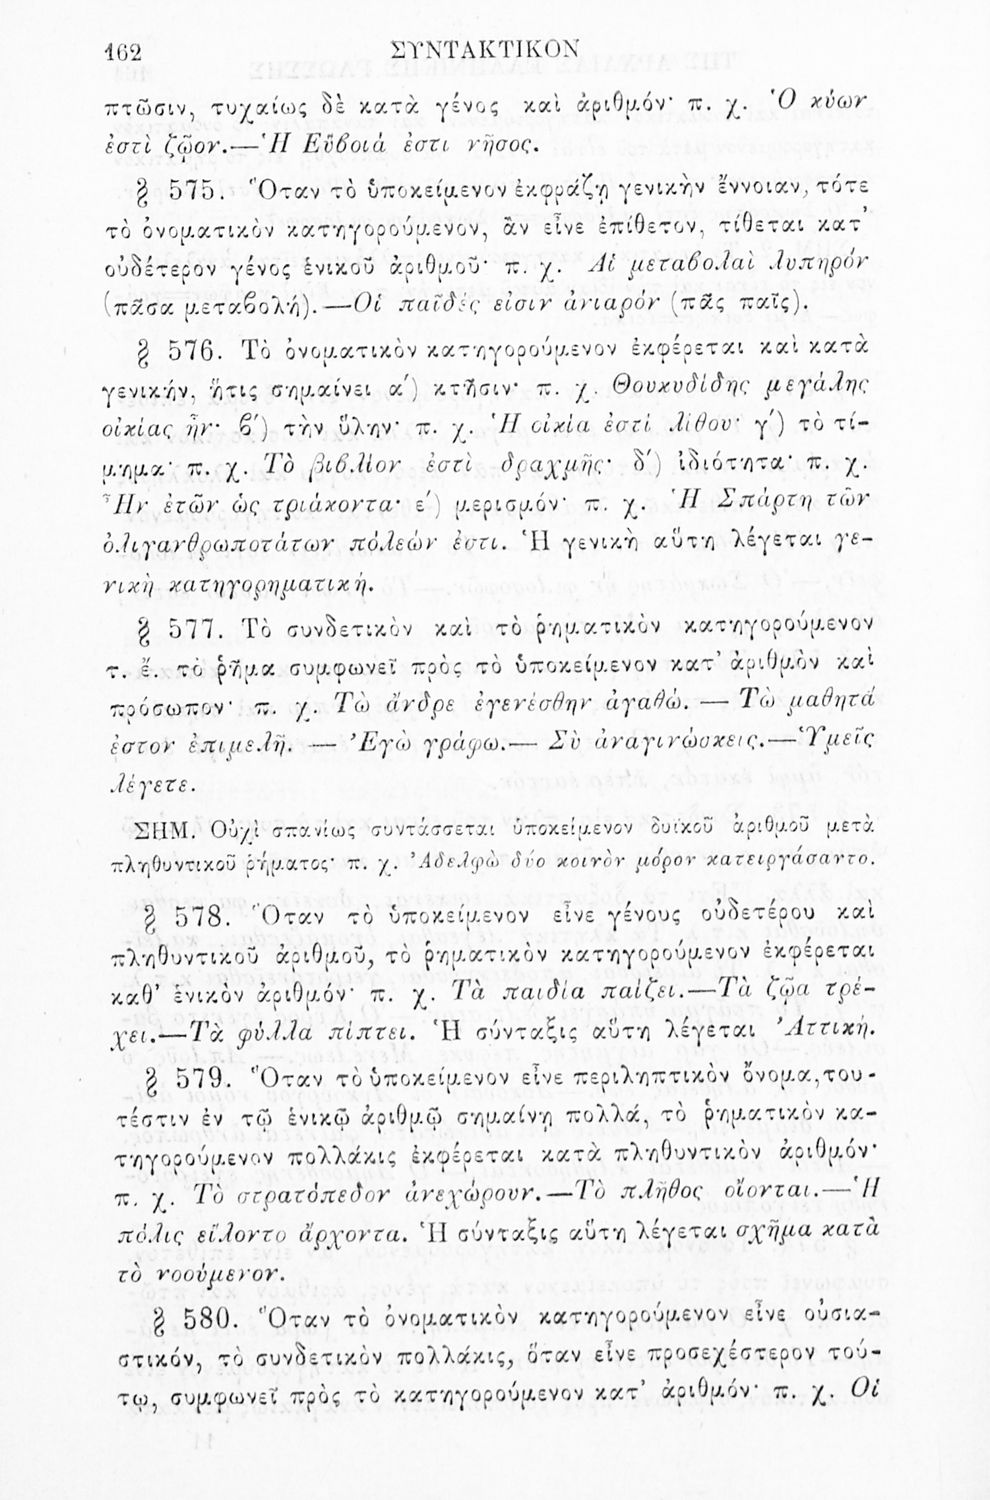 162 ΣΥΝΤΑΚΤΙΚΟΝ
πτῶσιν, τυχαίως δὲ κατὰ γένος καὶ ἀριθμόν· π. χ. Ὁ κύων
ἐστὶ ζῷον.—Ἡ Εὔβοιά ἐστι νῆσος.
§ 575. Ὅταν τὸ ὑποκείμενον ἐκφράζῃ γενικὴν ἔννοιαν, τότε
τὸ ὀνοματικὸν κατηγορούμενον, ἂν εἶνε ἐπίθετον, τίθεται κατ’
οὐδέτερον γένος ἑνικοῦ ἀριθμοῦ· π. χ. Αἱ μεταβολαὶ λυπηρόν
(πᾶσα μεταβολή).—Οἱ παῖδές εἰσιν ἀνιαρόν (πᾶς παῖς).
§ 576. Τὸ ὀνοματικὸν κατηγορούμενον ἐκφέρεται καὶ κατὰ
γενικήν, ἥτις σημαίνει α′) κτῆσιν· π. χ. Θουκυδίδης μεγάλης
οἰκίας ἦν· β′) τὴν ὕλην· π. χ. Ἡ οἰκία ἐστὶ λίθου· γ′) τὸ τί-
μημα· π. χ. Τὸ βιβλίον ἐστὶ δραχμῆς· δ′) ἰδιότητα· π. χ.
Ἦν ἐτῶν ὡς τριάκοντα· ε′) μερισμόν· π. χ. Ἡ Σπάρτη τῶν
ὀλιγανθρωποτάτων πόλεών ἐστι. Ἡ γενικὴ αὕτη λέγεται γε-
νικὴ κατηγορηματική.
§ 577. Τὸ συνδετικὸν καὶ τὸ ῥηματικὸν κατηγορούμενον
τ. ἔ. τὸ ῥῆμα συμφωνεῖ πρὸς τὸ ὑποκείμενον κατ’ ἀριθμὸν καὶ
πρόσωπον· π. χ. Τὼ ἄνδρε ἐγενέσθην ἀγαθώ. — Τὼ μαθητά
ἐστον ἐπιμελῆ. — Ἐγὼ γράφω.— Σὺ ἀναγινώσκεις.—Ὑμεῖς
λέγετε.
ΣΗΜ. Οὐχὶ σπανίως συντάσσεται ὑποκείμενον δυϊκοῦ ἀριθμοῦ μετὰ
πληθυντικοῦ ῥήματος· π. χ. Ἀδελφὼ δύο κοινὸν μόρον κατειργάσαντο.
§ 578. Ὅταν τὸ ὑποκείμενον εἶνε γένους οὐδετέρου καὶ
πληθυντικοῦ ἀριθμοῦ, τὸ ῥηματικὸν κατηγορούμενον ἐκφέρεται
καθ’ ἑνικὸν ἀριθμόν· π. χ. Τὰ παιδία παίζει.—Τὰ ζῷα τρέ-
χει.—Τὰ φύλλα πίπτει. Ἡ σύνταξις αὕτη λέγεται Ἀττική.
§ 579. Ὅταν τὸ ὑποκείμενον εἶνε περιληπτικὸν ὄνομα,του-
τέστιν ἐν τῷ ἑνικῷ ἀριθμῷ σημαίνῃ πολλά, τὸ ῥηματικὸν κα-
τηγορούμενον πολλάκις ἐκφέρεται κατὰ πληθυντικὸν ἀριθμόν·
π. χ. Τὸ στρατόπεδον ἀνεχώρουν.—Τὸ πλῆθος οἴονται.—Ἡ
πόλις εἵλοντο ἄρχοντα. Ἡ σύνταξις αὕτη λέγεται σχῆμα κατὰ
τὸ νοούμενον.
§ 580. Ὅταν τὸ ὀνοματικὸν κατηγορούμενον εἶνε οὐσια-
στικόν, τὸ συνδετικὸν πολλάκις, ὅταν εἶνε προσεχέστερον τού-
τῳ, συμφωνεῖ πρὸς τὸ κατηγορούμενον κατ’ ἀριθμόν· π. χ. Οἱ